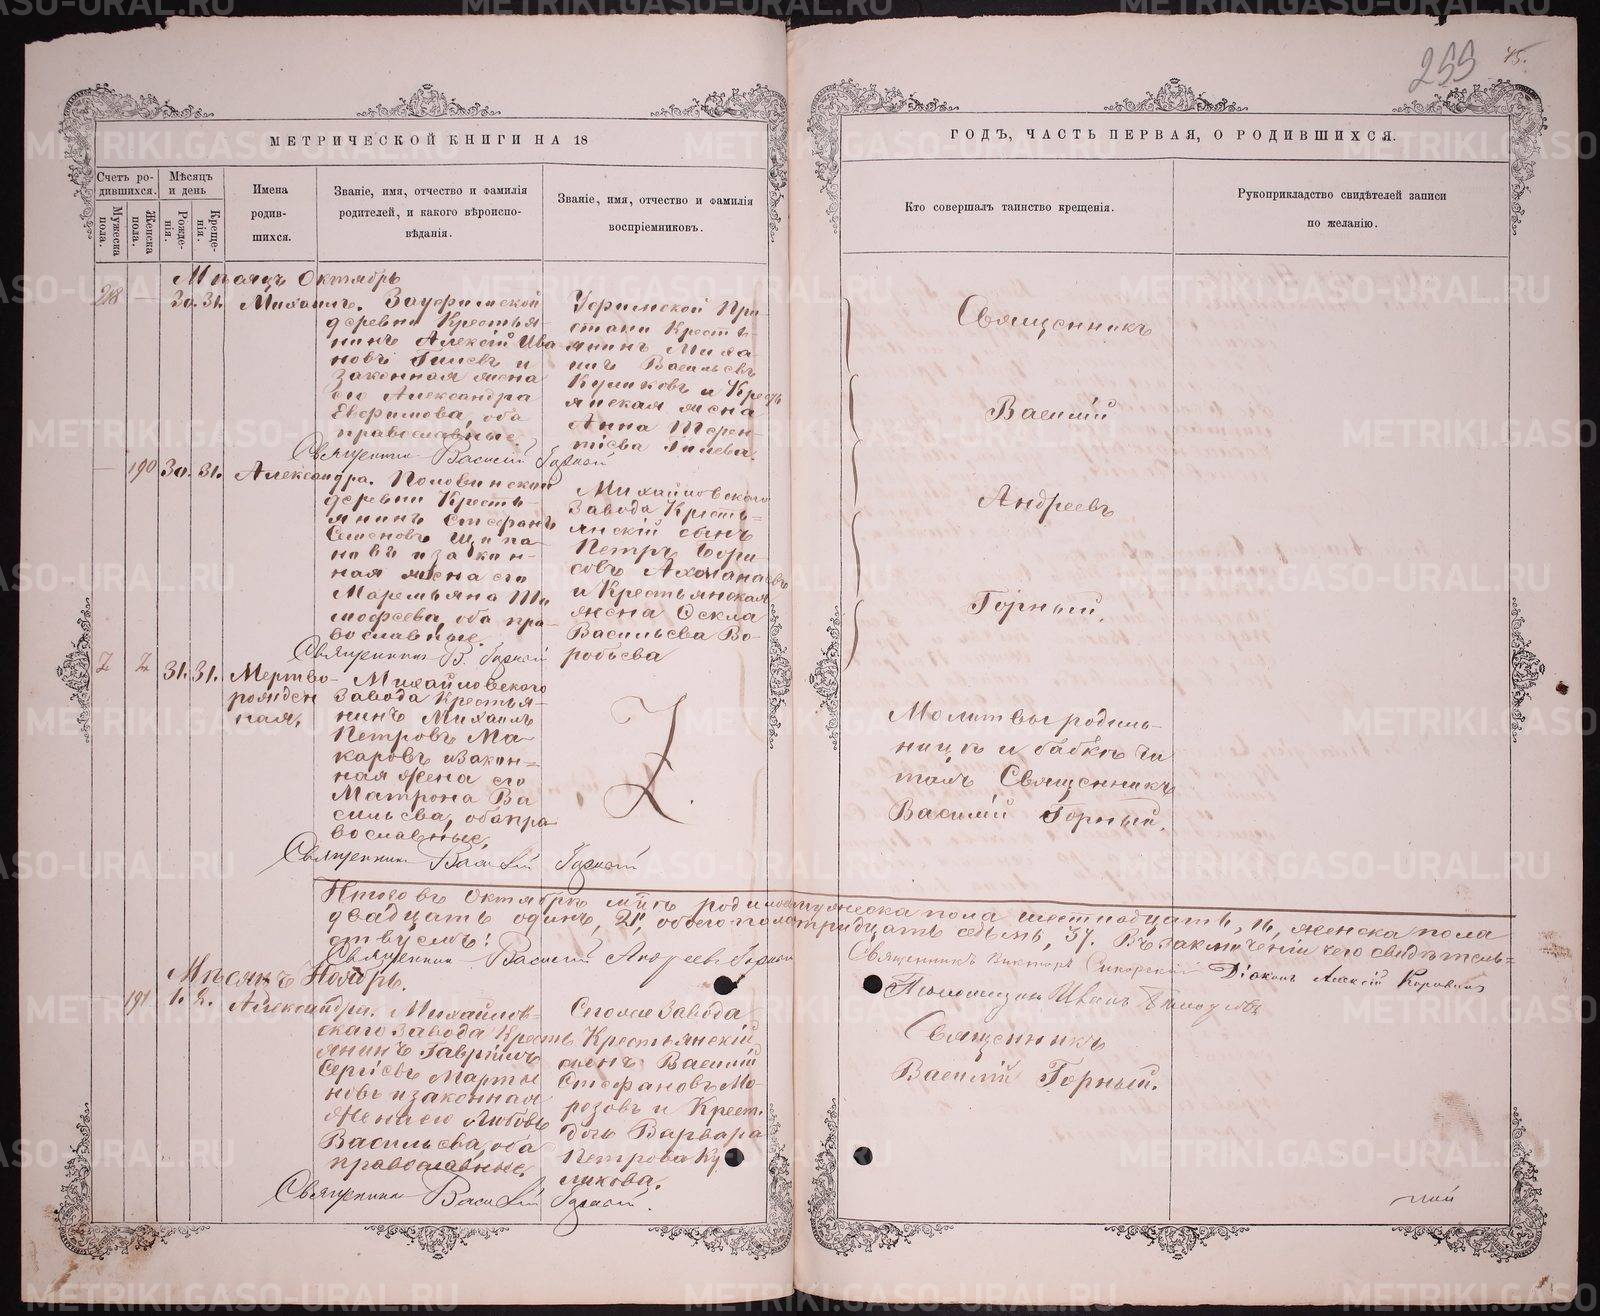 255 45.
МЕТРИЧЕСКОЙ КНИГИ НА 18
ГОДЪ, ЧАСТЬ ПЕРВАЯ, О РОДИВШИХСЯ.
Счетъ ро-
дившихся.
Мужеска пола.
Женска пола.
Мѣсяцъ
и день
Рожде-
нія.
Креще-
нія.
Имена
родив-
шихся.
Званіе, имя, отчество и фамилія
родителей, и какого вѣроиспо-
вѣданія.
Званіе, имя, отчество и фамилія
воспріемниковъ.
Кто совершалъ таинство крещенія.
Рукоприкладство свидѣтелей записи
по желанію.
Мѣсяцъ Октябрь
218 — 30. 31. Михаилъ.
Зауфимской
деревни Крестья-
нинъ Алексій Ива
новъ Гилевъ и
Законная жена
его Александра
Евфимова, оба
православные.
Уфимской При-
стани Кресть-
янинъ Миха-
илъ Васильевъ
Куликовъ и Кресть
янская жена
Анна Терен-
тіева Гилева.
Священникъ Василій Горный
— 190 30. 31. Александра.
Половинской
деревни Кресть-
янинъ Стефанъ
Семеновъ Щипа-
новъ и закон-
ная жена его
Маремьяна Ти
мофеева, оба пра-
вославные.
Михайловскаго
Завода Кресть-
янскій сынъ
Петръ Бори-
совъ
и Крестьянская
жена Фекла
Васильева Во-
робьева
Священникъ В. Горной
Священникъ
Василій
Андреевъ
Горный.
Z Z 31. 31. Мертво-
рожден
ная.
Михайловскаго
Завода Крестья-
нинъ Михаилъ
Петровъ Ма-
каровъ и Закон-
ная Жена его
Матрона Ва
сильева, оба пра
вославные.
Z.
Молитвы родиль-
ницѣ и бабкѣ чи
талъ Священникъ
Василій Горный.
Священникъ Василій Горной
Итого въ Октябрѣ м-цѣ родилось мужеска пола шестнадцать, 16, женска пола
двадцать одинъ, 21, обоего пола тридцать седьмь, 37. Въ заключеніи чего свидѣтель=
ствуемъ:
Священникъ Василій Андреевъ Горной
Священникъ Викторъ Діаконъ Алексій Коровинъ
Псаломщикъ Иванъ
Мѣсяцъ Ноябрь.
191 1. 2. Александра.
Михайлов-
скаго Завода Кресть
янинъ Гавріилъ
Сергіевъ Марты
новъ и законная
Жена его Любовь
Васильева, оба
православные.
Сегоже Завода
Крестьянскій
сынъ Василій
Стефановъ Мо-
розовъ и Крест.
дочь Варвара
Петрова Ку
ликова.
Священникъ
Василій Горный.
Священникъ Василій Горной.
METRIKI.GASO-URAL.RU